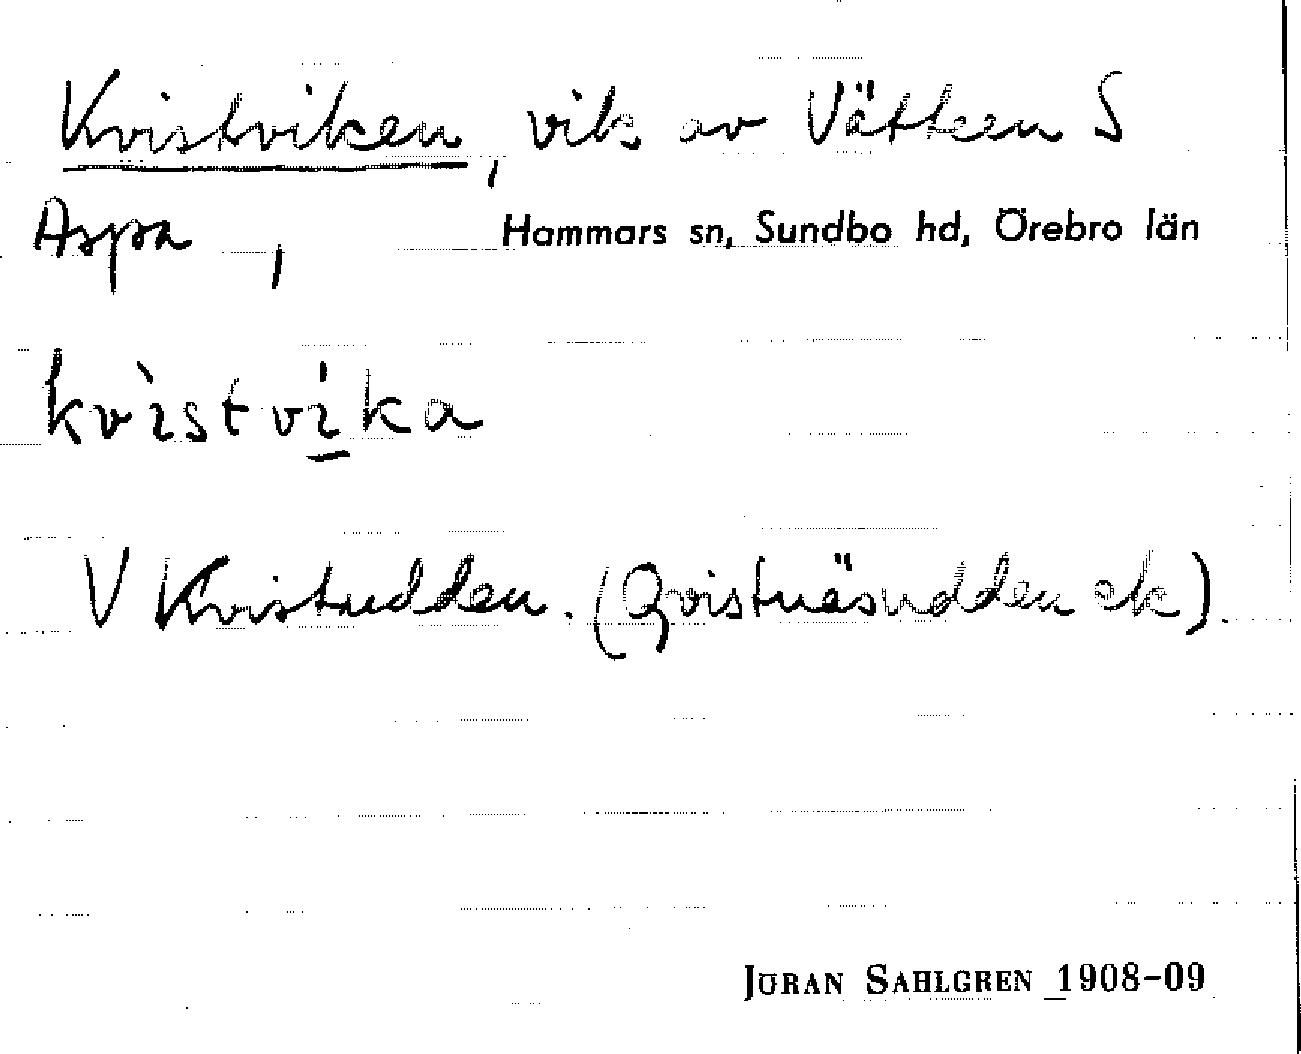 Kvistviken, vik av Vättern S
Aspa, Hammars sn, Sundbo hd, Örebro län
kvìstvi̱ka
V Kvistudden. (Qvistnäsudden ek).
JÖRAN SAHLGREN 1908-09